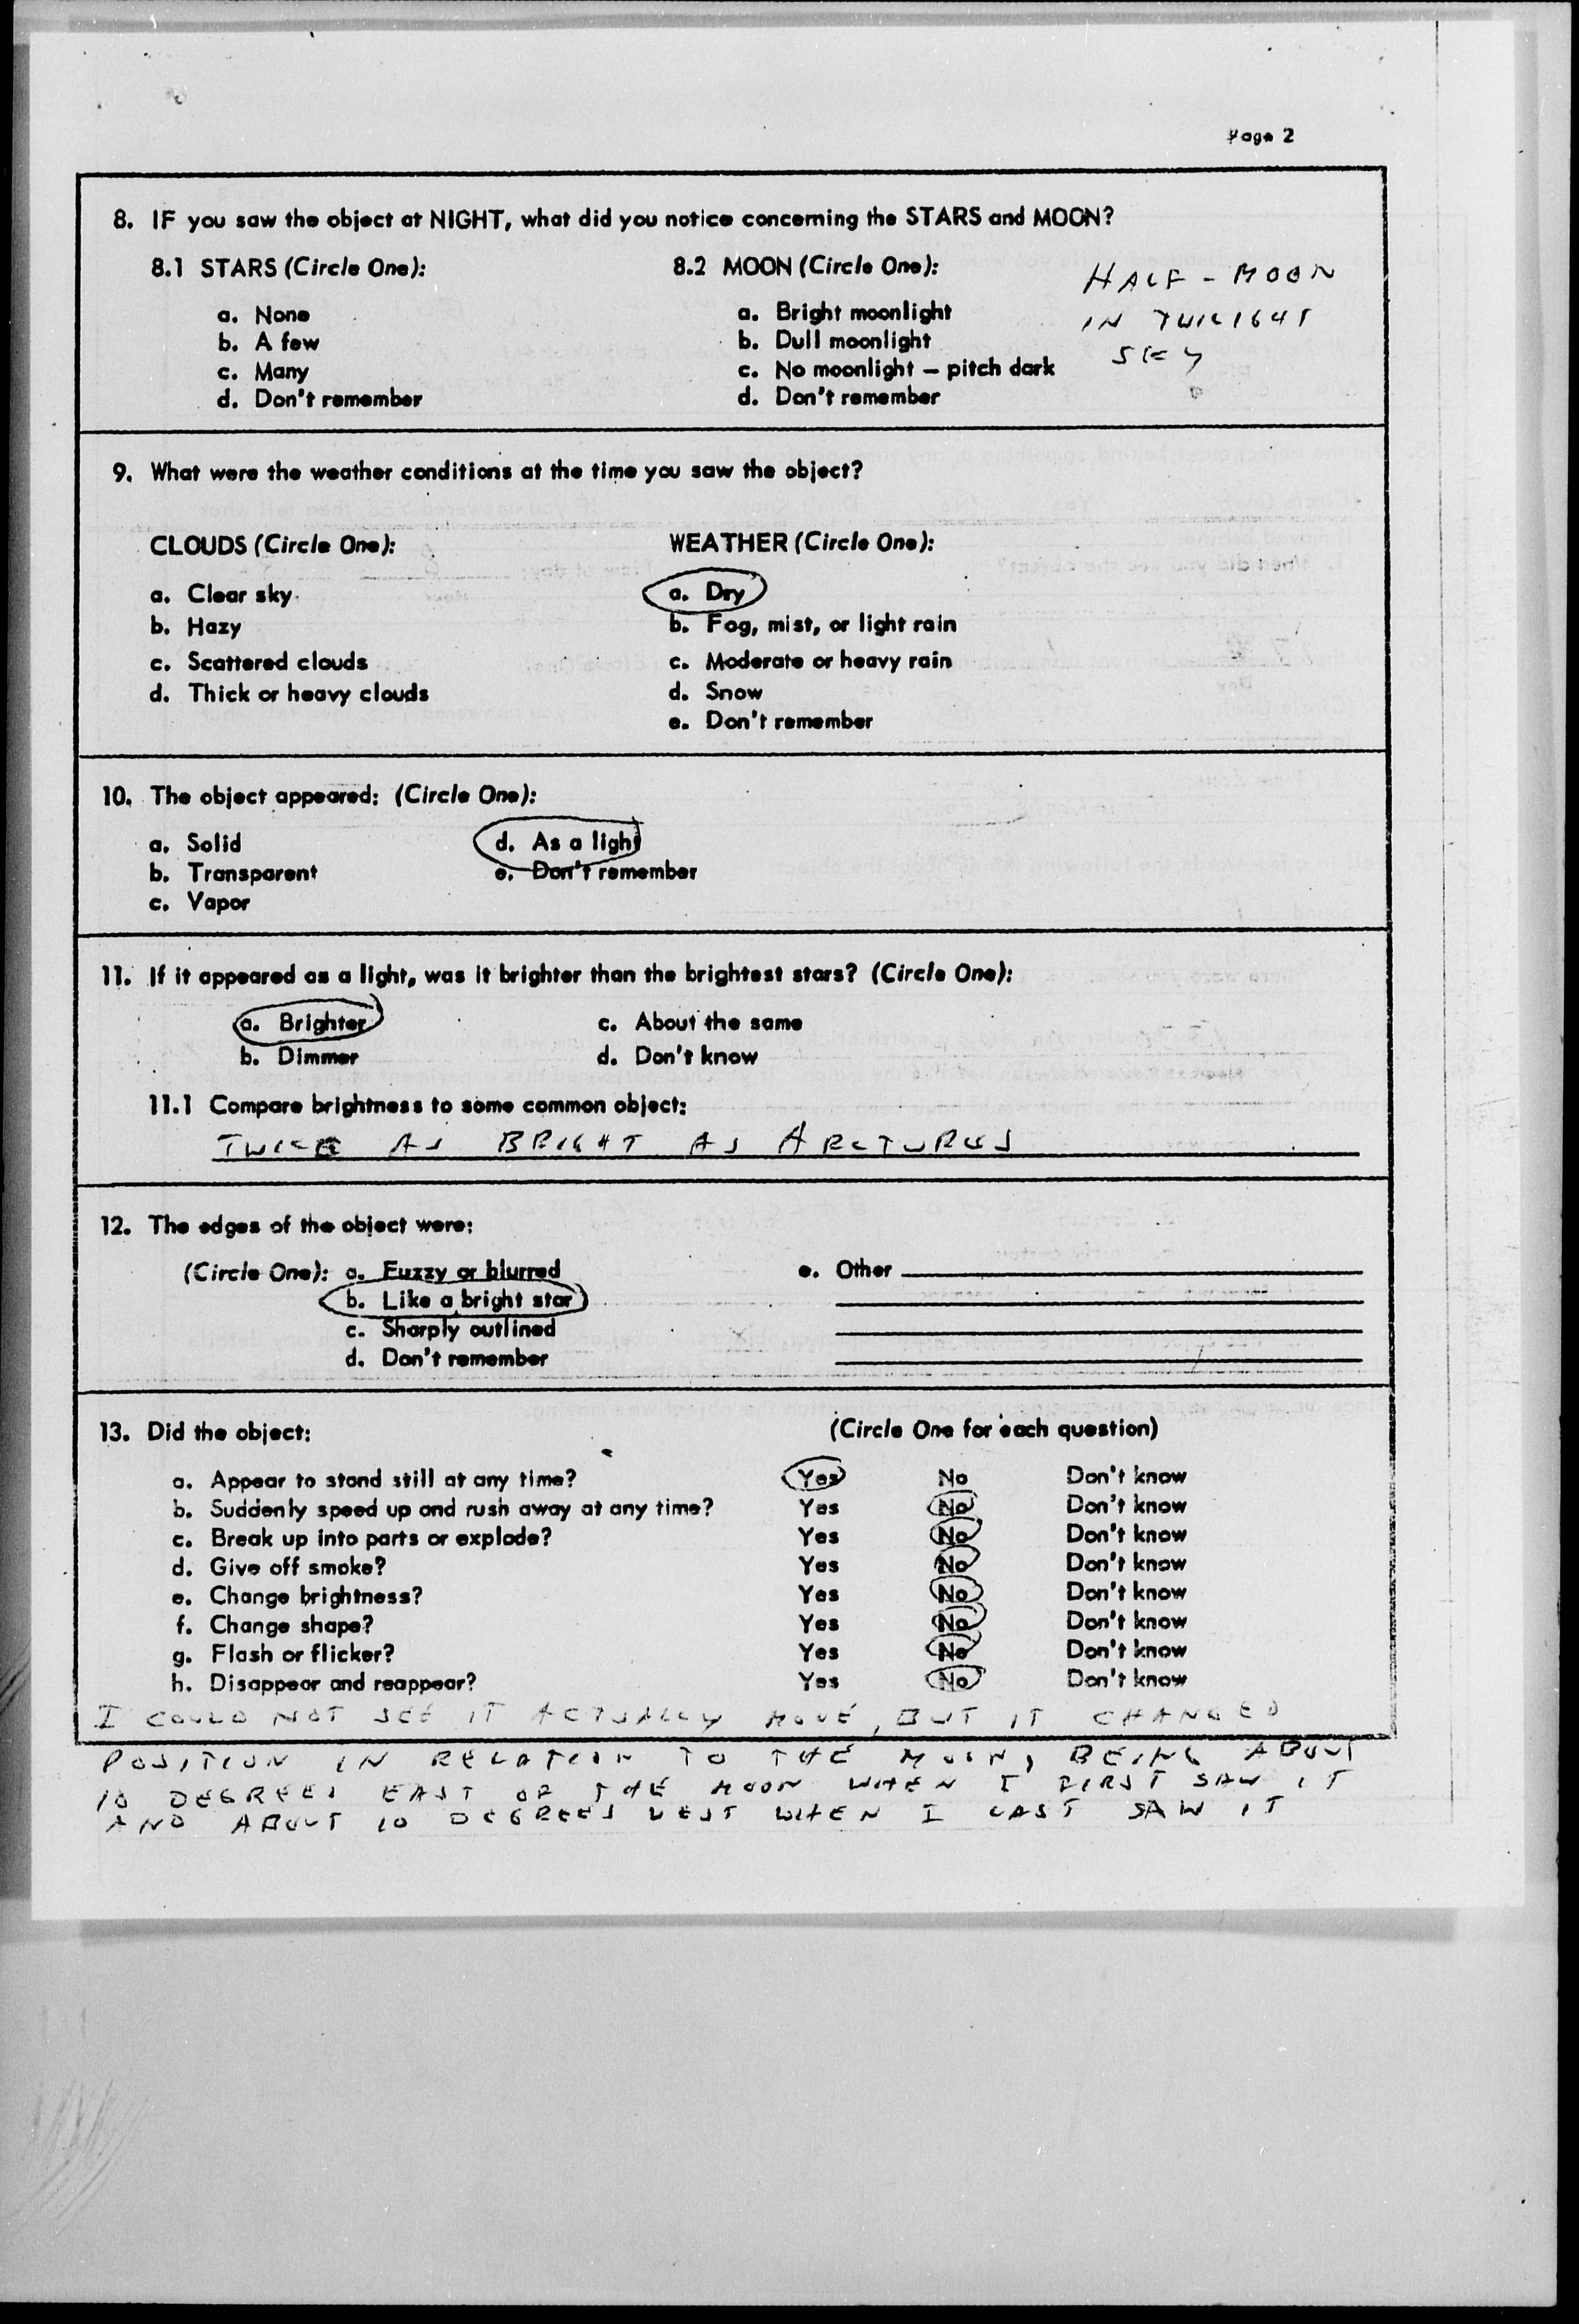 Page 2
8. IF you saw the object at NIGHT, what did you notice concerning the STARS and MOON?
8.1 STARS (Circle One):
a. None
b. A few
c. Many
d. Don't remember
8.2 MOON (Circle One):
a. Bright moonlight
b. Dull moonlight
c. No moonlight — pitch dark
d. Don't remember
HALF-MOON
IN TWILIGHT
SKY
9. What were the weather conditions at the time you saw the object?
CLOUDS (Circle One):
a. Clear sky
b. Hazy
c. Scattered clouds
d. Thick or heavy clouds
WEATHER (Circle One):
a. Dry
b. Fog, mist, or light rain
c. Moderate or heavy rain
d. Snow
e. Don't remember
10. The object appeared: (Circle One):
a. Solid
b. Transparent
c. Vapor
d. As a light
e. Don't remember
11. If it appeared as a light, was it brighter than the brightest stars? (Circle One):
a. Brighter
b. Dimmer
c. About the same
d. Don't know
11.1 Compare brightness to some common object:
TWICE AS BRIGHT AS ARCTURUS
12. The edges of the object were:
(Circle One): a. Fuzzy or blurred
b. Like a bright star
c. Sharply outlined
d. Don't remember
e. Other
13. Did the object: (Circle One for each question)
a. Appear to stand still at any time? Yes No Don't know
b. Suddenly speed up and rush away at any time? Yes No Don't know
c. Break up into parts or explode? Yes No Don't know
d. Give off smoke? Yes No Don't know
e. Change brightness? Yes No Don't know
f. Change shape? Yes No Don't know
g. Flash or flicker? Yes No Don't know
h. Disappear and reappear? Yes No Don't know
I COULD NOT SEE IT ACTUALLY MOVE, BUT IT CHANGED
POSITION IN RELATION TO THE MOON, BEING ABOUT
10 DEGREES EAST OF THE MOON WHEN I FIRST SAW IT
AND ABOUT 10 DEGREES WEST WHEN I LAST SAW IT